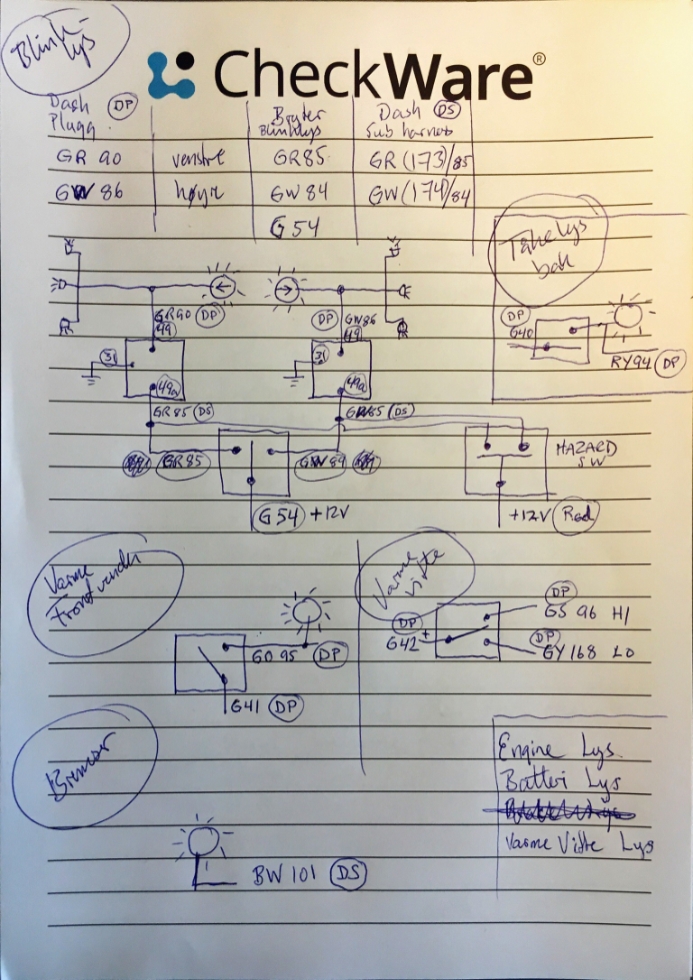 Blink-
lys
CheckWare®
Dash (DP) Bryter Dash (DS)
Plugg Blinklys Sub harness
GR 90 venstre GR85 GR (173)/85
GW 86 høyre GW 84 GW (174)/84
G 54
Tåkelys
bak
GR90 (DP) (DP) GW86
49 49
31 31
49a 49a
(DP)
G40
RY94 (DP)
GR85 (DS) GW85 (DS)
GR85 GW84
HAZARD
SW
G54 +12V +12V Red
Varme
Frontvindu
Varme
Vifte
(DP)
GS 96 HI
(DP)
G42 +
(DP)
GY 168 LO
GO 95 (DP)
G41 (DP)
Bremser
Engine Lys
Batteri Lys
Varme Vifte Lys
BW 101 (DS)